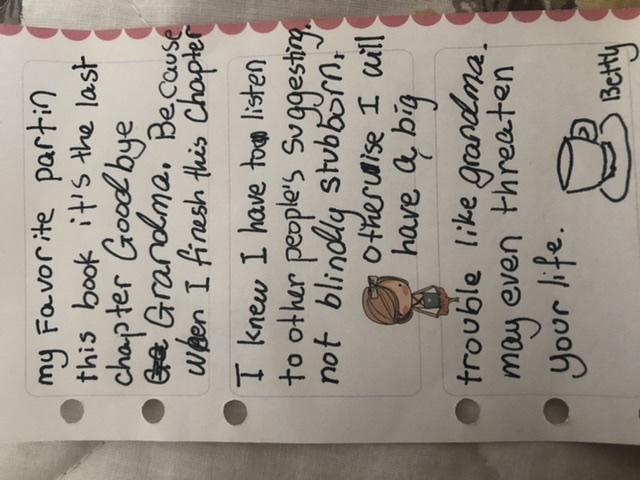 my Favorite part in
this book it's the last
chapter Goodbye
Grandma. Because
when I finesh this chapter
I knew I have to listen
to other people's suggesting.
not blindly stubborn.
otherwise I will
have a big
trouble like grandma.
may even threaten
your life.
Betty